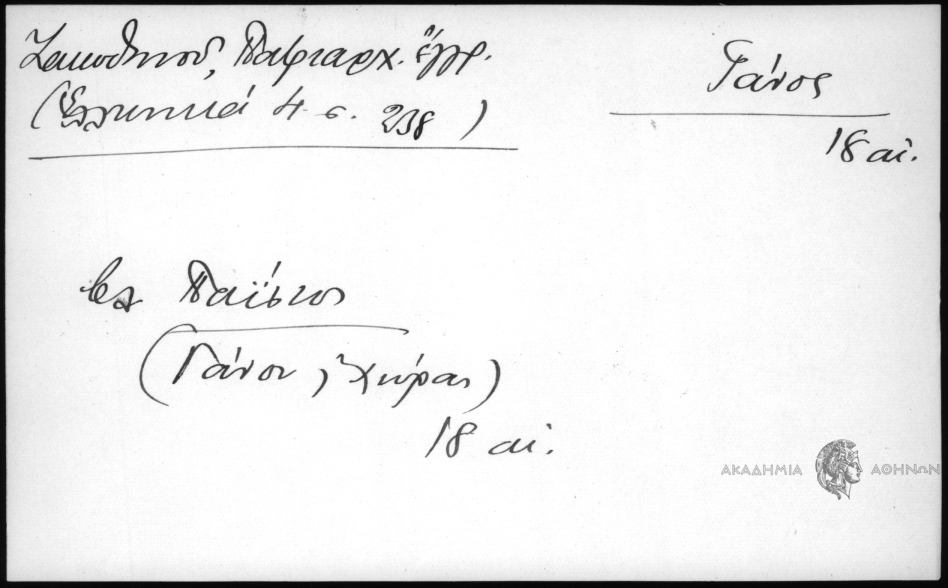 Ζακυθηνού, Πατριαρχ. έγγρ.
(Ελληνικά 4 σ. 238)
Γάνος
18 αι.
βλ Παΐσιος
(Γάνου, Χώρας)
18 αι.
ΑΚΑΔΗΜΙΑ ΑΘΗΝΩΝ